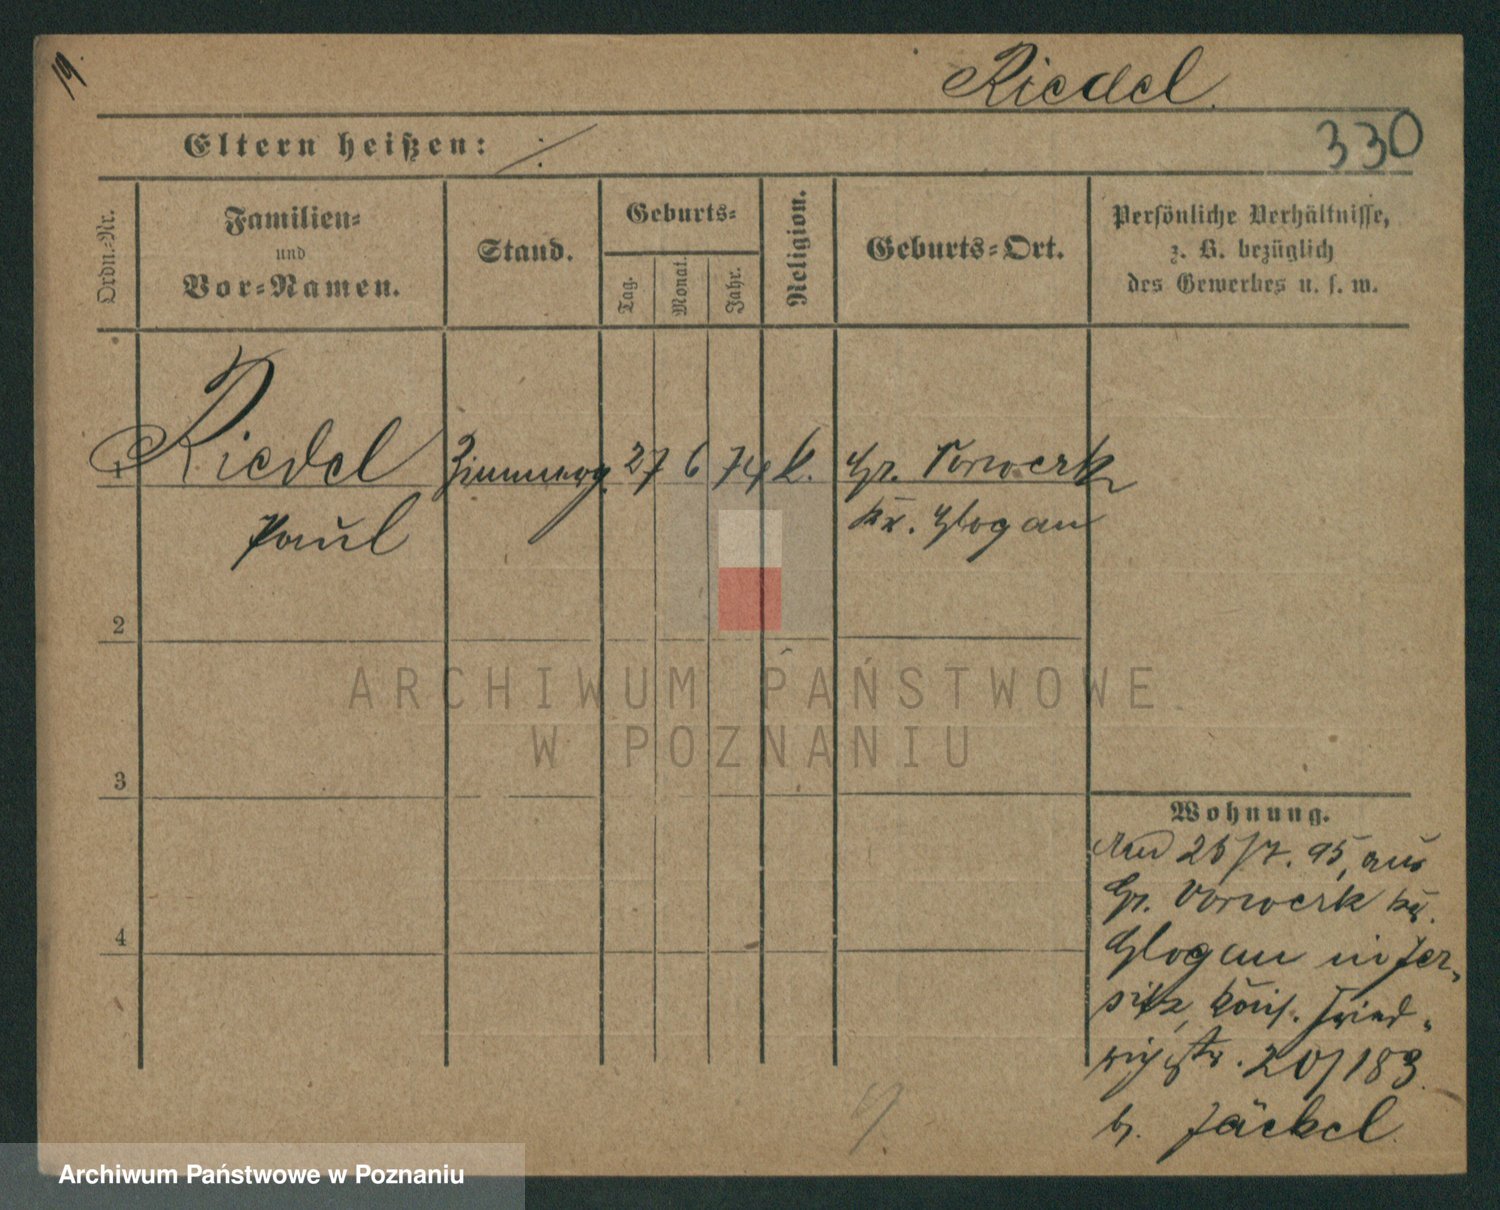 19.
Riedel.
330
Eltern heißen: ./.
Ordn.-Nr.
Familien-
und
Vor-Namen.
Stand.
Geburts-
Tag.
Monat.
Jahr.
Religion.
Geburts-Ort.
Persönliche Verhältnisse,
z. B. bezüglich
des Gewerbes u. s. w.
1 Riedel Zimmerg. 27 6 74 k. Gr. Vorwerk
Paul Kr. Glogau
2
3
4
ARCHIWUM PAŃSTWOWE
W POZNANIU
Wohnung.
25/7. 95, aus
Gr. Vorwerk Kr.
Glogau in Jer-
sitz, Kais. Fried-
richstr. 20/183.
b. Jäckel.
Archiwum Państwowe w Poznaniu